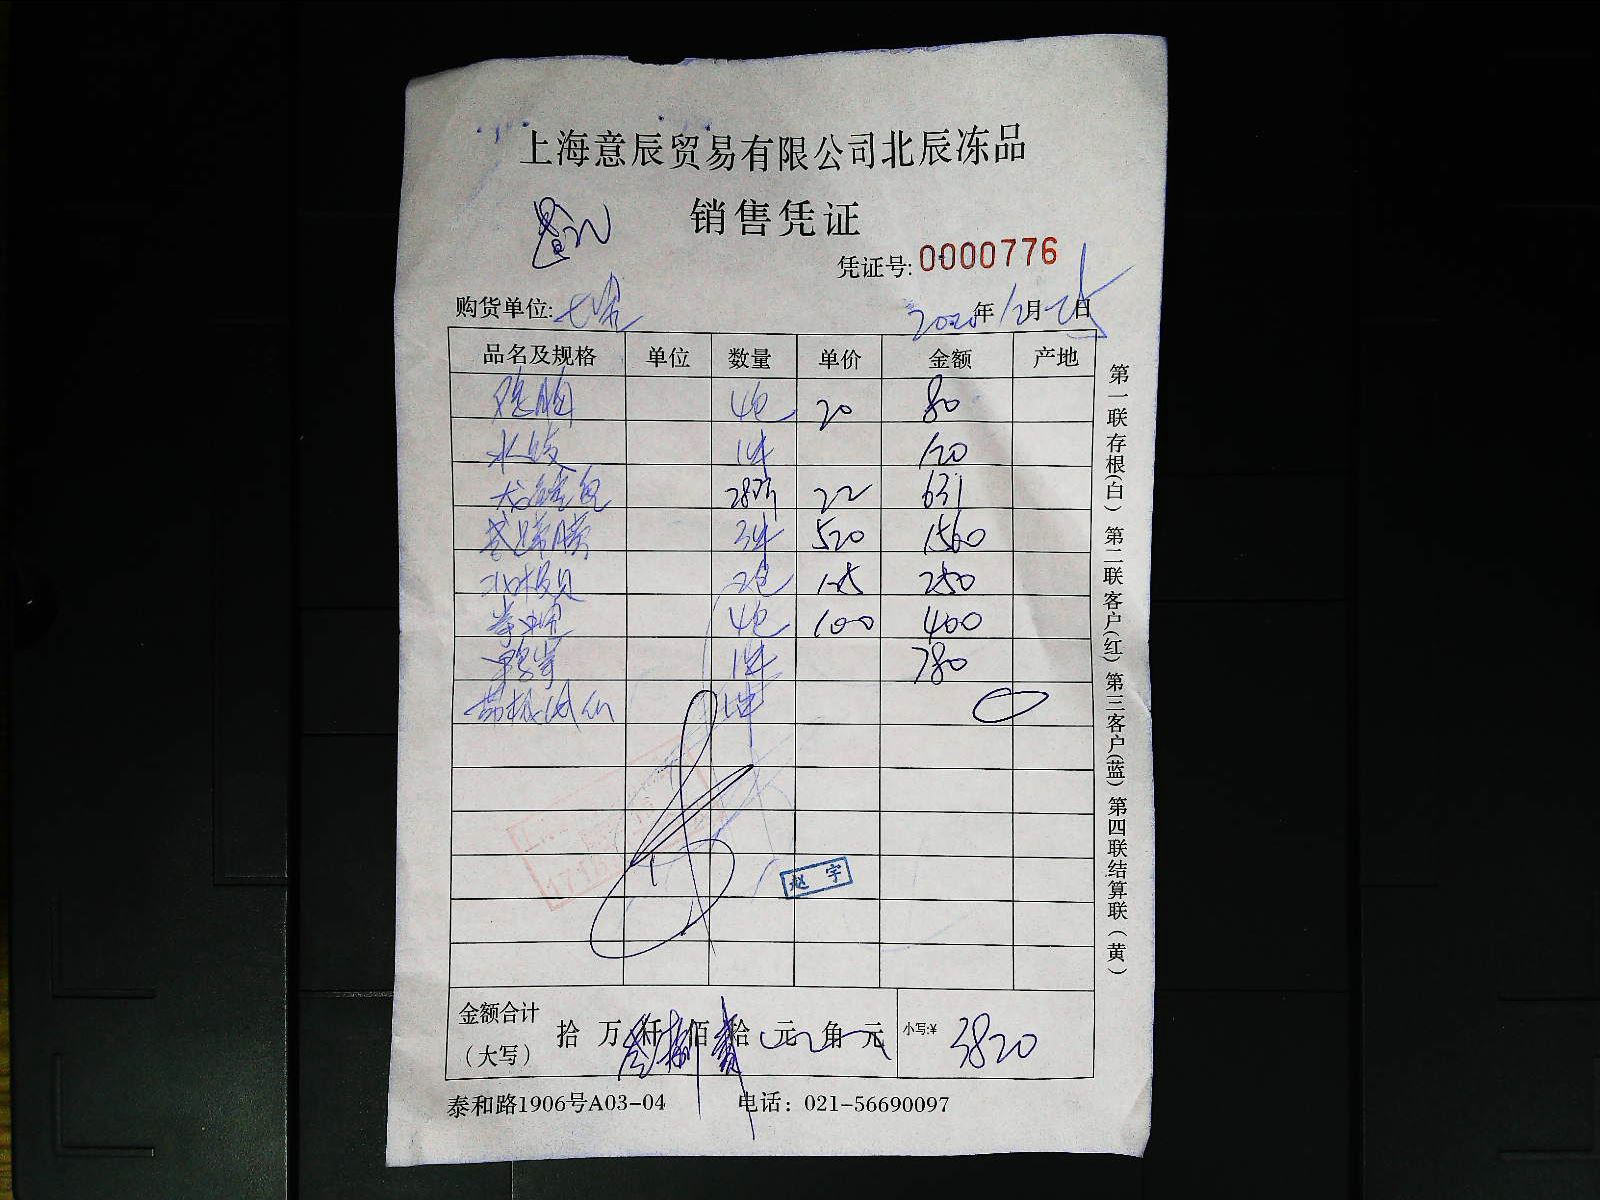 上海意辰贸易有限公司北辰冻品
销售凭证
凭证号: 0000776
购货单位: 七
2020年12月25日
品名及规格 单位 数量 单价 金额 产地
4包 20 80
水 1件 120
28斤 22 631
3件 520 1560
北极贝 2包 125 250
4包 100 400
1件 780
1件
赵宇
金额合计 拾 万 叁仟 捌佰 贰拾 元 角 元 小写:¥ 3820
(大写)
泰和路1906号A03-04 电话: 021-56690097
第一联存根(白) 第二联客户(红) 第三客户(蓝) 第四联结算联(黄)